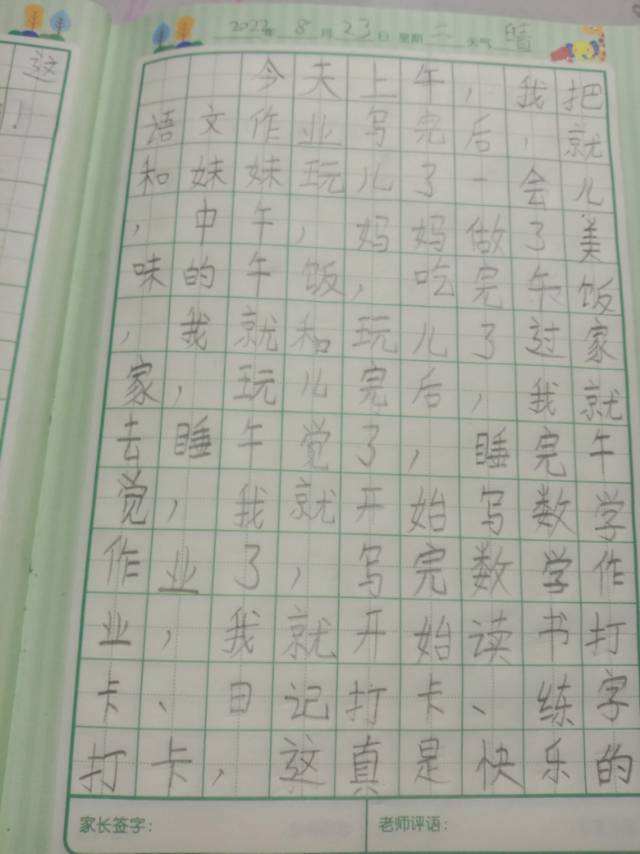 2022年 8月 23日 星期 二 天气 晴
今天上午，我把
语文作业写完后，就
和妹妹玩儿了一会儿
，中午，妈妈做了美
味的午饭，吃完午饭
，我就和玩儿了过家
家，玩儿完后，我就
去睡午觉了，睡完午
觉，我就开始写数学
作业了，写完数学作
业，我就开始读书打
卡、日记打卡、练字
打卡，这真是快乐的
家长签字：
老师评语：
这
！